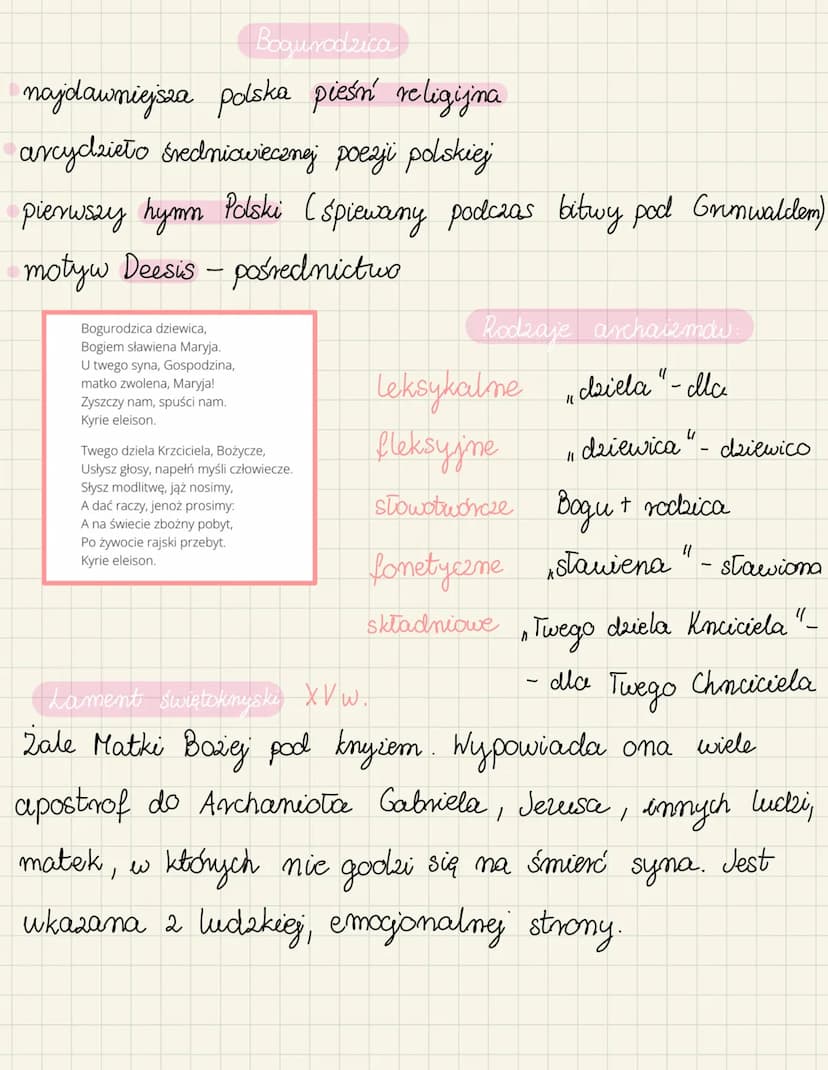 Bogurodzica
najdawniejsza polska pieśń religijna
arcydzieło średniowiecznej poezji polskiej
pierwszy hymn Polski (śpiewany podczas bitwy pod Grunwaldem)
motyw Deesis – pośrednictwo
Bogurodzica dziewica,
Bogiem sławiena Maryja.
U twego syna, Gospodzina,
matko zwolena, Maryja!
Zyszczy nam, spuści nam.
Kyrie eleison.
Twego dziela Krzciciela, Bożycze,
Usłysz głosy, napełń myśli człowiecze.
Słysz modlitwę, jąż nosimy,
A dać raczy, jenoż prosimy:
A na świecie zbożny pobyt,
Po żywocie rajski przebyt.
Kyrie eleison.
Rodzaje archaizmów:
leksykalne „dziela" - dla
fleksyjne „dziewica" - dziewico
słowotwórcze Bogu + rodzica
fonetyczne „sławiena" - sławiona
składniowe „Twego dziela Krzciciela" -
- dla Twego Chrzciciela
Lament świętokrzyski XV w.
Żale Matki Bożej pod krzyżem. Wypowiada ona wiele
apostrof do Archanioła Gabriela, Jezusa, innych ludzi,
matek, w których nie godzi się na śmierć syna. Jest
ukazana z ludzkiej, emocjonalnej strony.